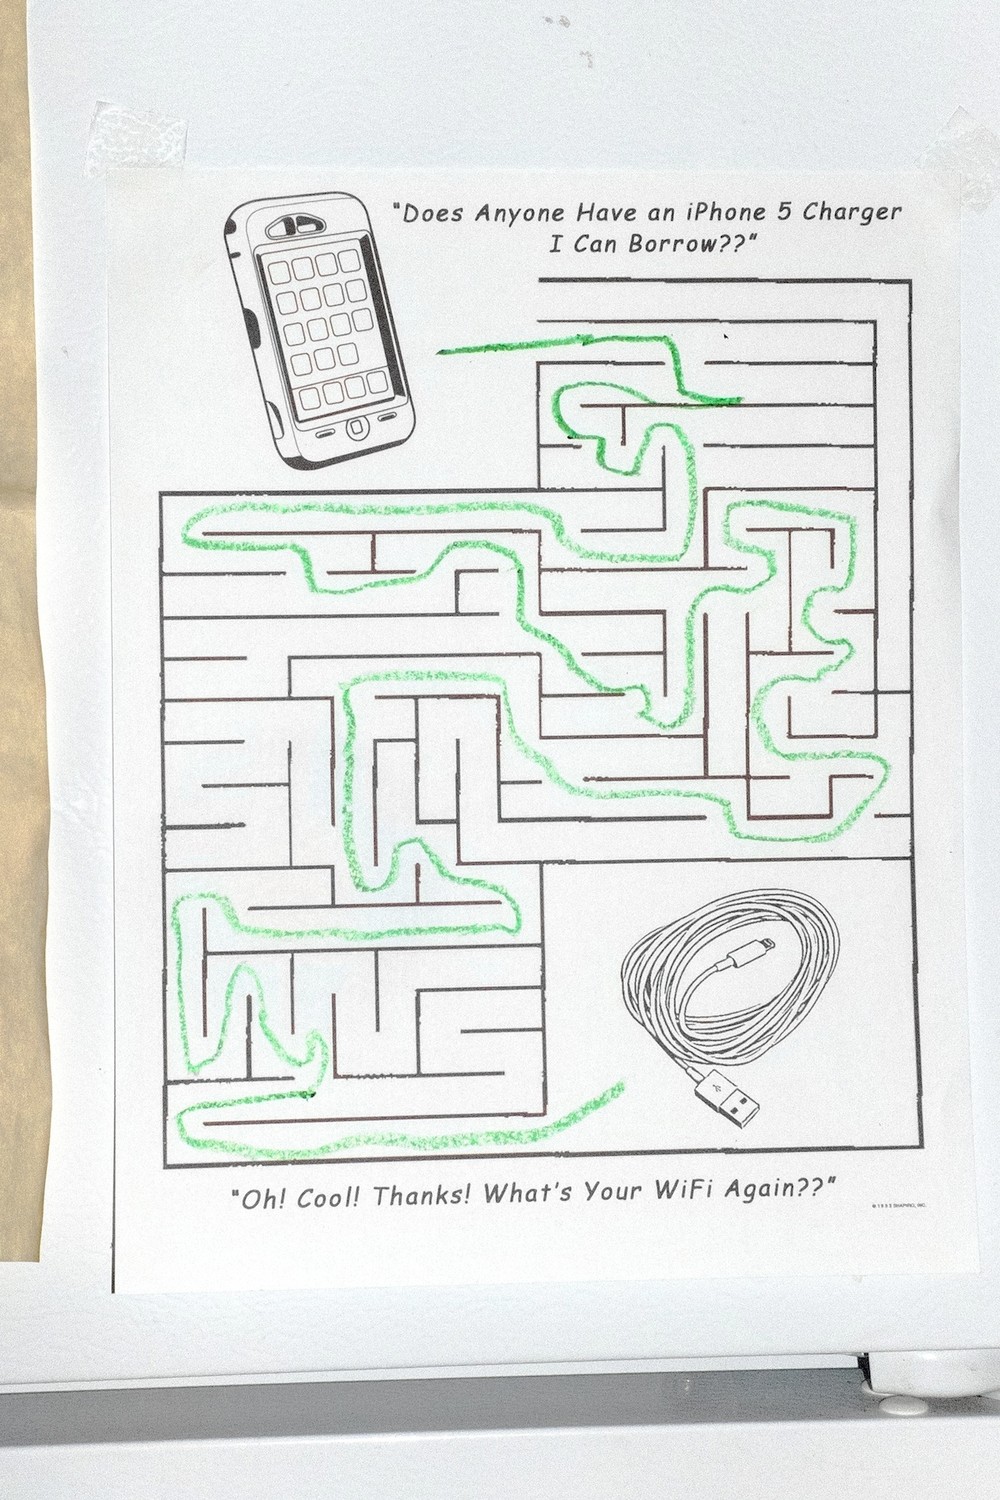 "Does Anyone Have an iPhone 5 Charger
I Can Borrow??"
"Oh! Cool! Thanks! What's Your WiFi Again??"